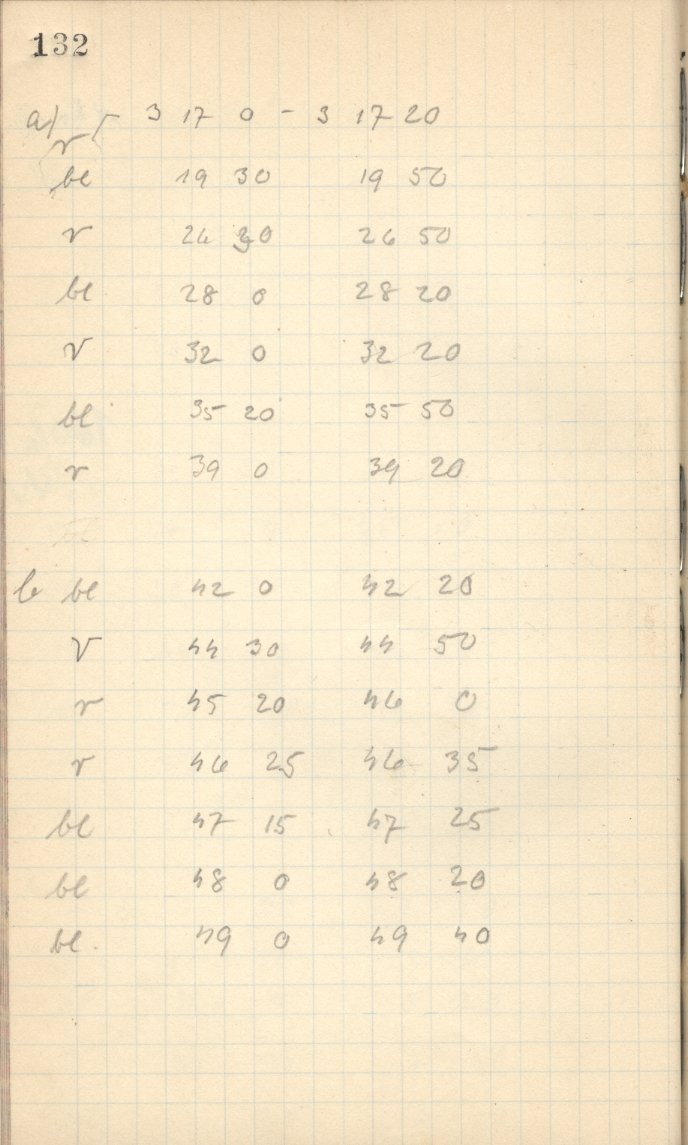 132
a) r 3 17 0 - 3 17 20
bl 19 30 19 50
r 26 30 26 50
bl 28 0 28 20
r 32 0 32 20
bl 35 20 35 50
r 39 0 39 20
b bl 42 0 42 20
r 44 30 44 50
r 45 20 46 0
r 46 25 46 35
bl 47 15 47 25
bl 48 0 48 20
bl. 49 0 49 40